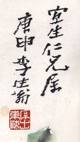 寄生仁兄属
庚申李生翁